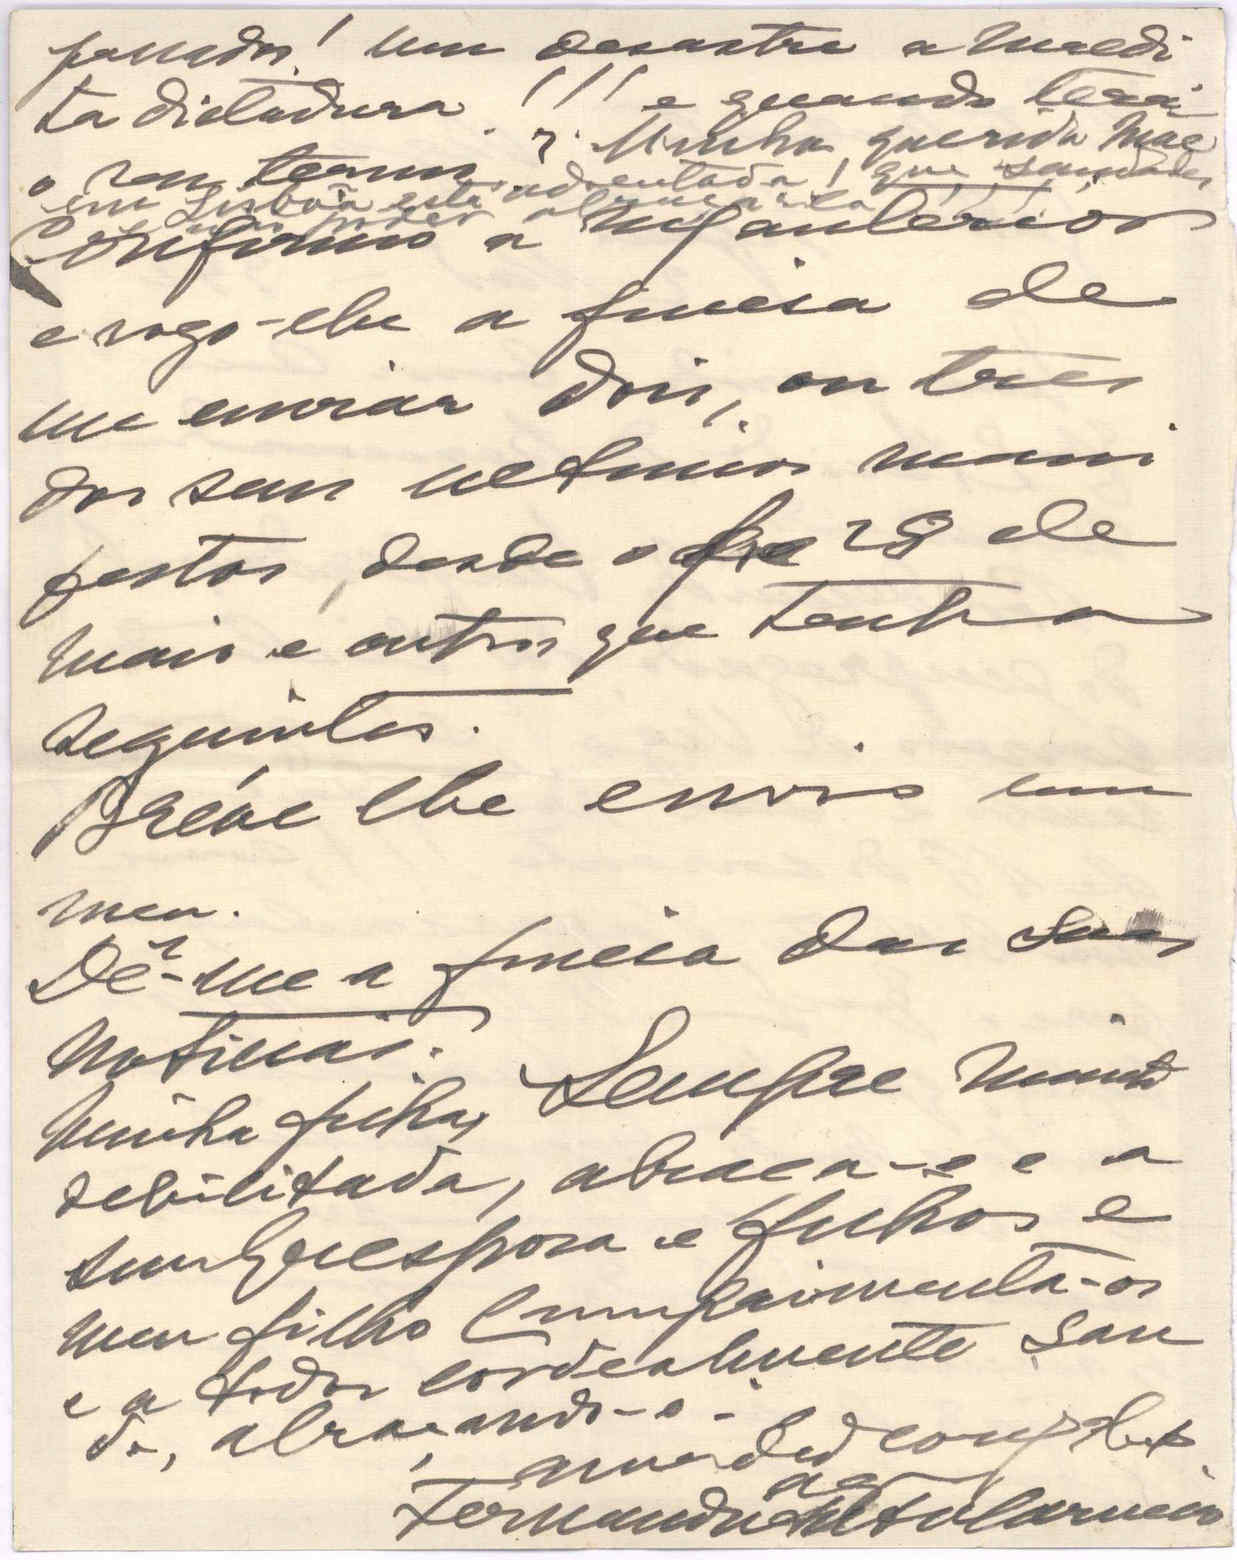 passados! um desastre a maldi
ta dictadura!!! e quando terá
o seu termo? Minha querida Mãe
em Lisbôa está adoentada, que saudades
e não poder abraçá-la
Confirmo a m/ anterior
e rogo-lhe a fineza de
me enviar dois, ou tres
dos seus ultimos mani
festos, desde o de 28 de
Maio e outros que tenha
seguintes.
Bréve lhe envio um
meu.
Dê-me a fineza das suas
noticias.
Minha filha, sempre muito
debilitada, abraça-o e a
sua esposa e filhos e
meu filho cumprimenta-os
e a todos cordealmente sau
do, abraçando-o.
am ded
Fernando